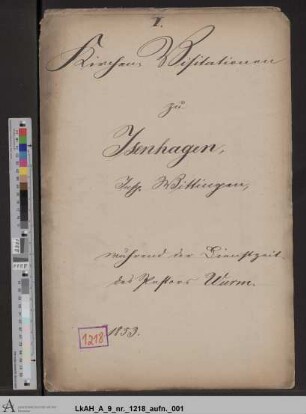 I.
Kirchen Visitationen
zu
Isenhagen,
Insp. Wittingen,
während der Dienstzeit
des Pastors Wurm.
1853.
1218
LkAH_A_9_nr._1218_aufn._001